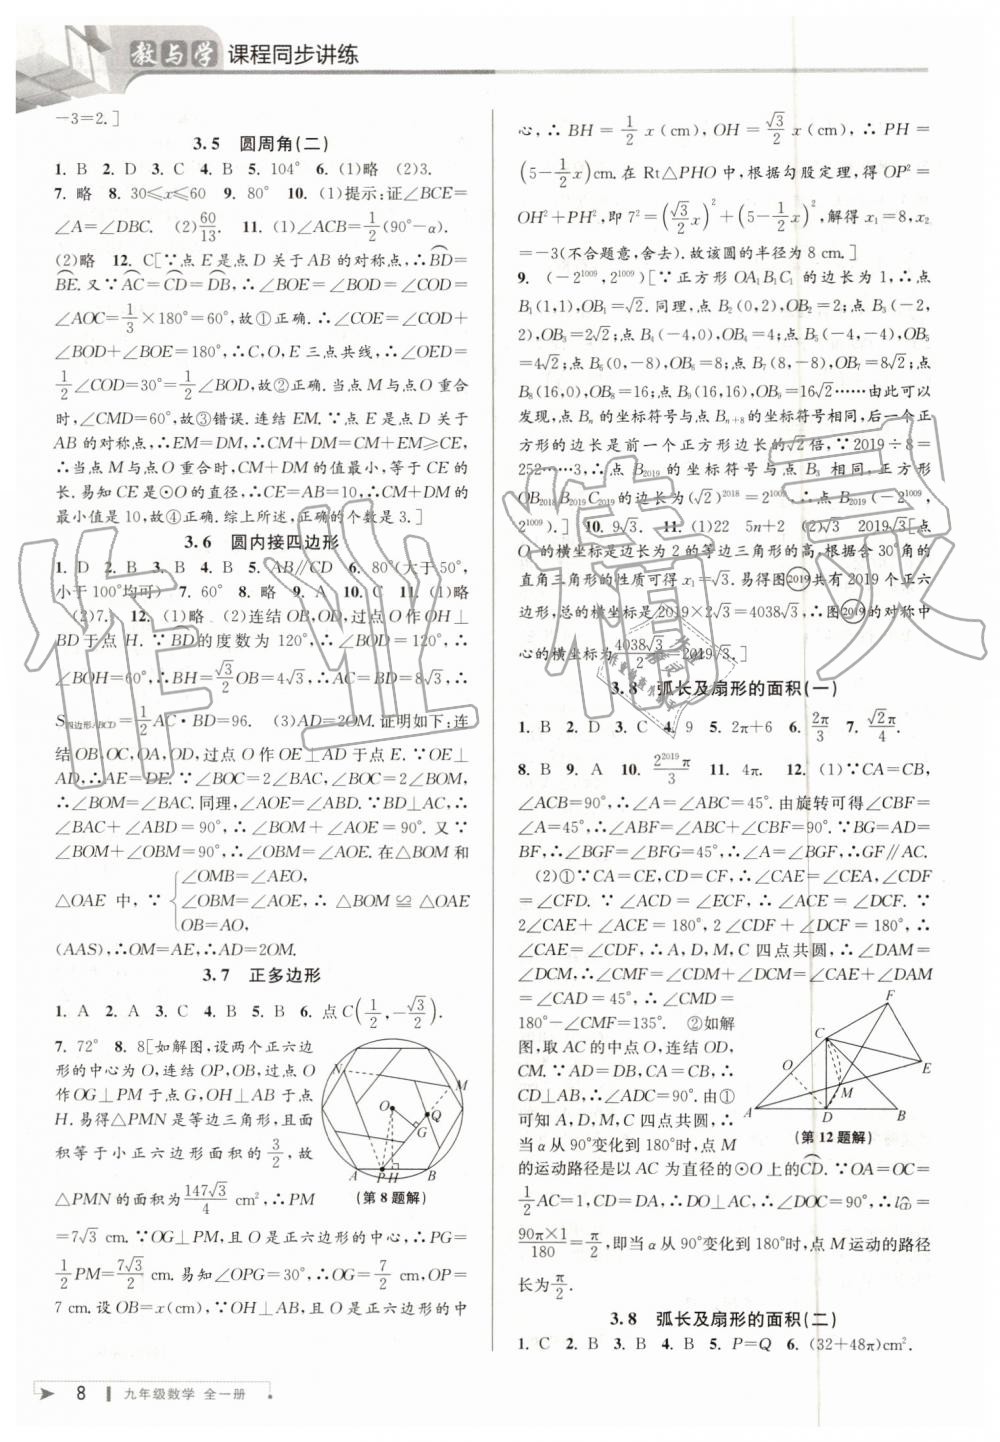 教与学 课程同步讲练
-3=2.]
3.5 圆周角(二)
1. B 2. D 3. C 4. B 5. 104° 6. (1)略 (2)3.
7. 略 8. 30≤x≤60 9. 80° 10. (1)提示:证∠BCE=
∠A=∠DBC. (2)60/13. 11. (1)∠ACB=1/2(90°-α).
(2)略 12. C[∵点 E 是点 D 关于 AB 的对称点,∴⌒BD=
⌒BE. 又∵⌒AC=⌒CD=⌒DB,∴∠BOE=∠BOD=∠COD=
∠AOC=1/3×180°=60°,故①正确.∴∠COE=∠COD+
∠BOD+∠BOE=180°,∴C,O,E 三点共线,∴∠OED=
1/2∠COD=30°=1/2∠BOD,故②正确.当点 M 与点 O 重合
时,∠CMD=60°,故③错误.连结 EM.∵点 E 是点 D 关于
AB 的对称点,∴EM=DM,∴CM+DM=CM+EM≥CE,
∴当点 M 与点 O 重合时,CM+DM 的值最小,等于 CE 的
长.易知 CE 是⊙O 的直径,∴CE=AB=10,∴CM+DM 的
最小值是10,故④正确.综上所述,正确的个数是3.]
3.6 圆内接四边形
1. D 2. B 3. B 4. B 5. AB∥CD 6. 80°(大于50°,
小于100°均可) 7. 60° 8. 略 9. A 10. C 11. (1)略
(2)7. 12. (1)略 (2)连结 OB,OD,过点 O 作 OH⊥
BD 于点 H. ∵⌒BD的度数为 120°,∴∠BOD=120°,∴
∠BOH=60°,∴BH=√3/2 OB=4√3,∴BD=8√3,∴
S四边形ABCD=1/2 AC·BD=96. (3)AD=2OM.证明如下:连
结 OB,OC,OA,OD,过点 O 作 OE⊥AD 于点 E.∵OE⊥
AD,∴AE=DE.∵∠BOC=2∠BAC,∠BOC=2∠BOM,
∴∠BOM=∠BAC.同理,∠AOE=∠ABD.∵BD⊥AC,∴
∠BAC+∠ABD=90°,∴∠BOM+∠AOE=90°.又∵
∠BOM+∠OBM=90°,∴∠OBM=∠AOE.在△BOM 和
△OAE 中, ∵ {∠OMB=∠AEO, ∠OBM=∠AOE, OB=AO, ∴ △BOM ≌ △OAE
(AAS),∴OM=AE,∴AD=2OM.
3.7 正多边形
1. A 2. A 3. C 4. B 5. B 6. 点C(1/2,-√3/2).
7. 72° 8. 8[如解图,设两个正六边
形的中心为 O,连结 OP,OB,过点 O
作 OG⊥PM 于点 G,OH⊥AB 于点
H. 易得△PMN 是等边三角形,且面
积等于小正六边形面积的3/2,故
△PMN 的面积为147√3/4 cm²,∴PM
=7√3 cm.∵OG⊥PM,且 O 是正六边形的中心,∴PG=
1/2PM=7√3/2 cm.易知∠OPG=30°,∴OG=7/2 cm,OP=
7 cm.设 OB=x(cm),∵OH⊥AB,且 O 是正六边形的中
N M O Q G A P H B
(第8题解)
心,∴BH=1/2 x(cm),OH=√3/2 x(cm),∴PH=
(5-1/2 x)cm.在 Rt△PHO 中,根据勾股定理,得 OP²=
OH²+PH²,即 7²=(√3/2 x)²+(5-1/2 x)²,解得 x₁=8,x₂
=-3(不合题意,舍去).故该圆的半径为8 cm.]
9. (-2¹⁰⁰⁹,2¹⁰⁰⁹)[∵正方形 OA₁B₁C₁ 的边长为 1,∴点
B₁(1,1),OB₁=√2.同理,点 B₂(0,2),OB₂=2;点 B₃(-2,
2),OB₃=2√2;点 B₄(-4,0),OB₄=4;点 B₅(-4,-4),OB₅
=4√2;点 B₆(0,-8),OB₆=8;点 B₇(8,-8),OB₇=8√2;点
B₈(16,0),OB₈=16;点 B₉(16,16),OB₉=16√2……由此可以
发现,点 Bₙ 的坐标符号与点 Bₙ₊₈ 的坐标符号相同,后一个正
方形的边长是前一个正方形边长的√2倍,∵2019÷8=
252……3,∴点 B₂₀₁₉ 的坐标符号与点 B₃ 相同,正方形
OB₂₀₁₈B₂₀₁₉C₂₀₁₉的边长为(√2)²⁰¹⁸=2¹⁰⁰⁹,∴点 B₂₀₁₉(-2¹⁰⁰⁹,
2¹⁰⁰⁹).] 10. 9√3. 11. (1)22 5n+2 (2)√3 2019√3[点
O₁ 的横坐标是边长为2的等边三角形的高,根据含30°角的
直角三角形的性质可得 x₁=√3.易得图2019共有2019个正六
边形,总的横坐标是2019×2√3=4038√3,∴图2019的对称中
心的横坐标为4038√3/2=2019√3.]
3.8 弧长及扇形的面积(一)
1. B 2. D 3. C 4. 9 5. 2π+6 6. 2π/3 7. √2π/4.
8. B 9. A 10. 2²⁰¹⁹π/3 11. 4π. 12. (1)∵CA=CB,
∠ACB=90°,∴∠A=∠ABC=45°.由旋转可得∠CBF=
∠A=45°,∴∠ABF=∠ABC+∠CBF=90°.∵BG=AD=
BF,∴∠BGF=∠BFG=45°,∴∠A=∠BGF,∴GF∥AC.
(2)①∵CA=CE,CD=CF,∴∠CAE=∠CEA,∠CDF
=∠CFD. ∵∠ACD=∠ECF,∴∠ACE=∠DCF. ∵
2∠CAE+∠ACE=180°,2∠CDF+∠DCF=180°,∴
∠CAE=∠CDF,∴A,D,M,C 四点共圆,∴∠DAM=
∠DCM,∴∠CMF=∠CDM+∠DCM=∠CAE+∠DAM
=∠CAD=45°,∴∠CMD=
180°-∠CMF=135°. ②如解
图,取 AC 的中点 O,连结 OD,
CM.∵AD=DB,CA=CB,∴
CD⊥AB,∴∠ADC=90°.由①
可知 A,D,M,C 四点共圆,∴
当α从90°变化到180°时,点 M
的运动路径是以 AC 为直径的⊙O 上的⌒CD.∵OA=OC=
1/2AC=1,CD=DA,∴DO⊥AC,∴∠DOC=90°,∴l⌒CD=
90π×1/180=π/2,即当α从90°变化到180°时,点 M 运动的路径
长为π/2.
F C O E M A D B
(第12题解)
3.8 弧长及扇形的面积(二)
1. C 2. B 3. B 4. B 5. P=Q 6. (32+48π)cm².
8 九年级数学 全一册
作业精灵